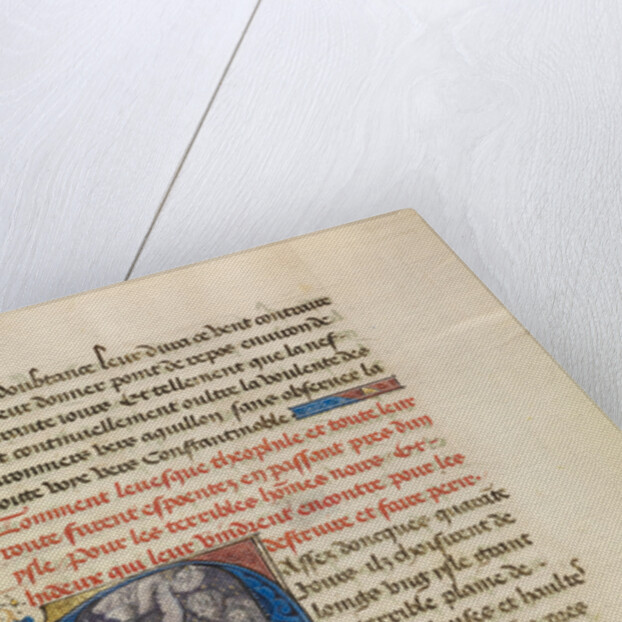 doubtance leur dura ce vent contraire
eur donner point de repos environ de
rante iours Et tellement que la nef
t continuellement oultre la voulente des
ronniers vers aquillon sans obseruer la
oitte voye vers Constantinoble
Comment leuesque theophile et toute leur
route furent espoentez en passant pres dun
ysle pour les terribles hommes noirs Et
hideux qui leur vindrent encontre pour les
destruire et faire perir.
Assez doncques quarante
Iours ilz
loingz ung ysle grant
terrible plaine de
et haulte